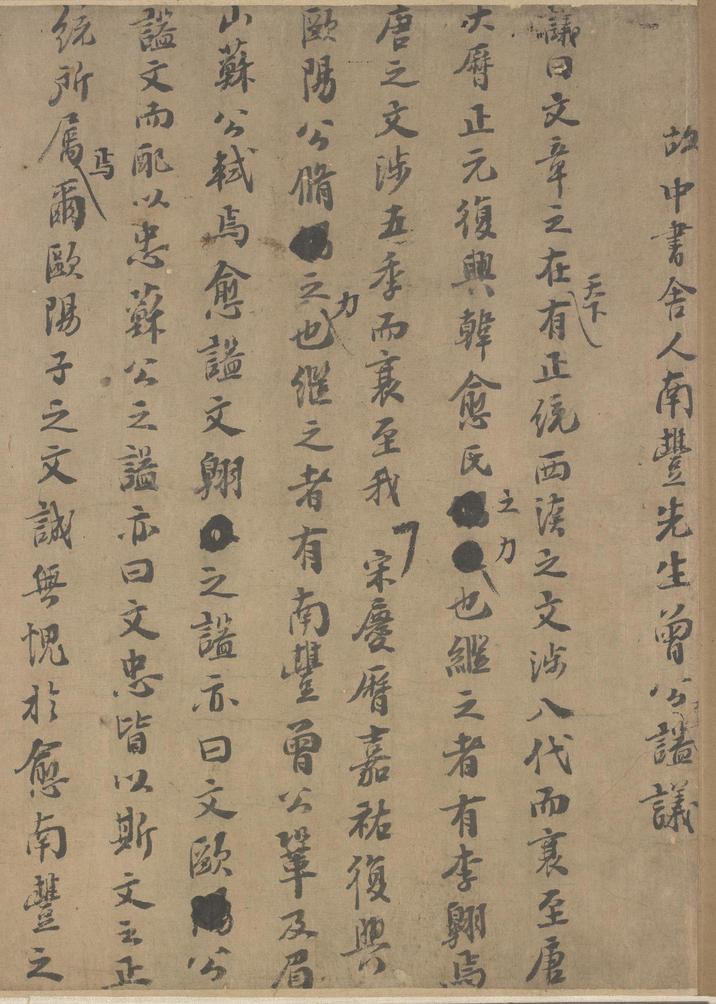 故中書舍人南豐先生曾公諡議
議曰文章之在天下有正統西漢之文涉八代而衰至唐
大曆正元復興韓愈氏之力也繼之者有李翱焉
唐之文涉五季而衰至我 宋慶曆嘉祐復興
歐陽公脩之力也繼之者有南豐曾公鞏及眉
山蘇公軾焉愈諡文翱之諡亦曰文歐公
諡文而配以忠蘇公之諡亦曰文忠皆以斯文之正
統所屬焉爾歐陽子之文誠無愧於愈南豐之